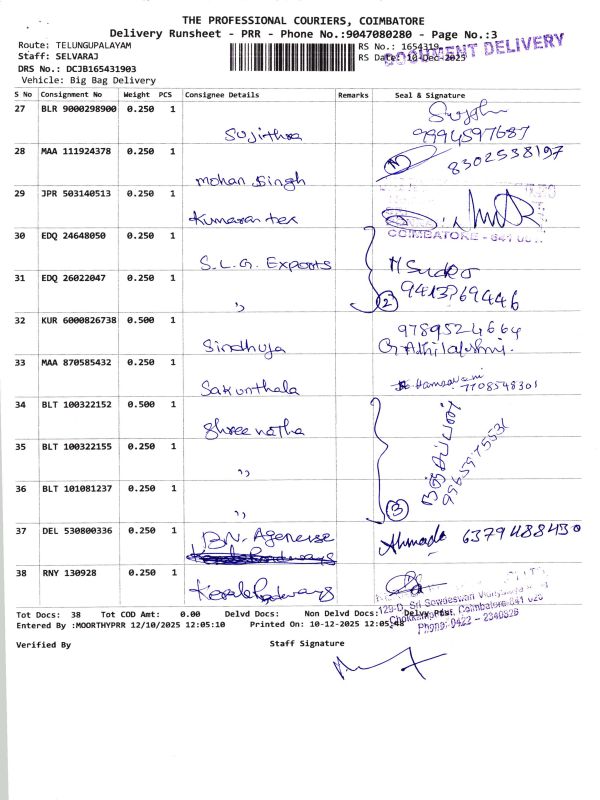 THE PROFESSIONAL COURIERS, COIMBATORE
Delivery Runsheet - PRR - Phone No.:9047080280 - Page No.:3
Route: TELUNGUPALAYAM
RS No.: 1654319
DOCUMENT DELIVERY
Staff: SELVARAJ
RS Date: 10-Dec-2025
DRS No.: DCJB165431903
Vehicle: Big Bag Delivery
S No Consignment No Weight PCS Consignee Details Remarks Seal & Signature
27 BLR 9000298900 0.250 1
Sujithra 9994597687
28 MAA 111924378 0.250 1
mohan singh 8302538197
29 JPR 503140513 0.250 1
Kumaran tex
COIMBATORE - 641
30 EDQ 24648050 0.250 1
S.L.G. Exports
31 EDQ 26022047 0.250 1
” 2 9413769446
32 KUR 6000826738 0.500 1
9789524664
Sindhuja
33 MAA 870585432 0.250 1
Sakunthala 7708548301
34 BLT 100322152 0.500 1
Shree natha
35 BLT 100322155 0.250 1
”
36 BLT 101081237 0.250 1
” 3
37 DEL 530800336 0.250 1
B.N. Agenerse 6379488430
38 RNY 130928 0.250 1
Kerala Roadways
129-D, Sri Sowdeswari
Coimbatore-641 020
Phone: 0422 - 2340826
Tot Docs: 38 Tot COD Amt: 0.00 Delvd Docs: Non Delvd Docs:
Entered By :MOORTHYPRR 12/10/2025 12:05:10 Printed On: 10-12-2025 12:05:48
Verified By Staff Signature